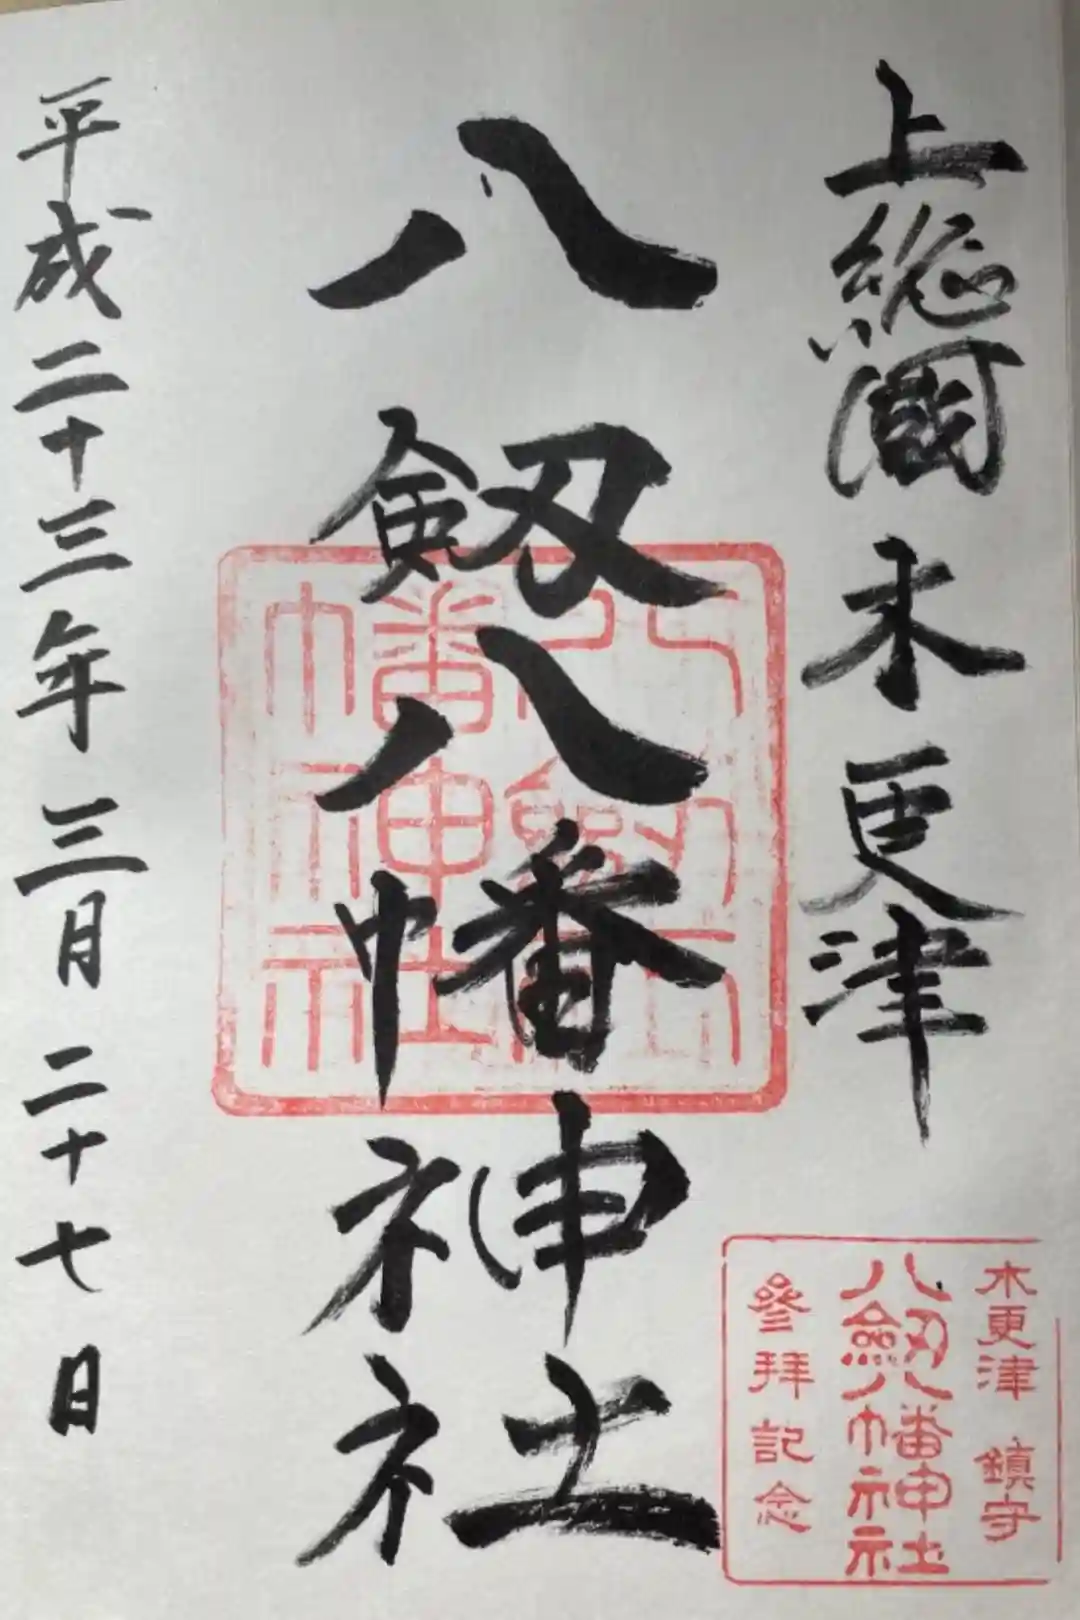 上総國木更津
八剱八幡神社
平成二十三年三月二十七日
八剱八幡神社
木更津 鎮守
八剱八幡神社
參拜記念